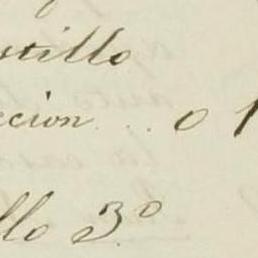 stillo
ccion . . 0 1
llo 3.º